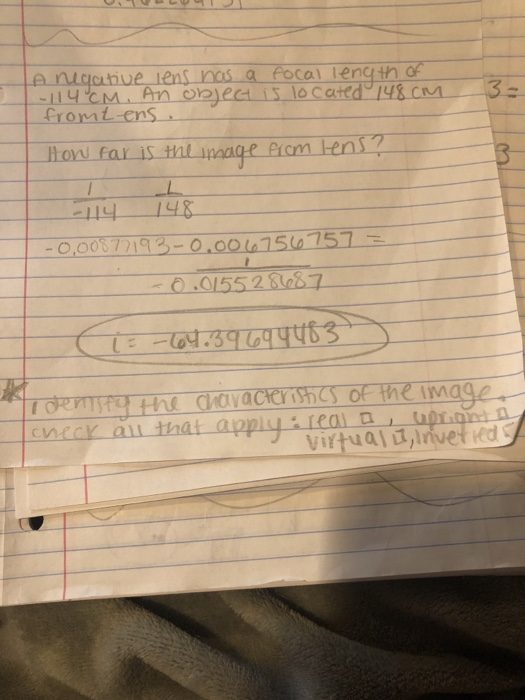 A negative lens has a focal length of
-114 cm. An object is located 148 cm
from lens.
How far is the image from lens?
1 1
-114 148
-0.00877193-0.006756757 =
1
-0.015528687
i = -64.39694483
* Identify the characteristics of the image.
check all that apply: real □, upright □
virtual □, inverted □
3 =
3